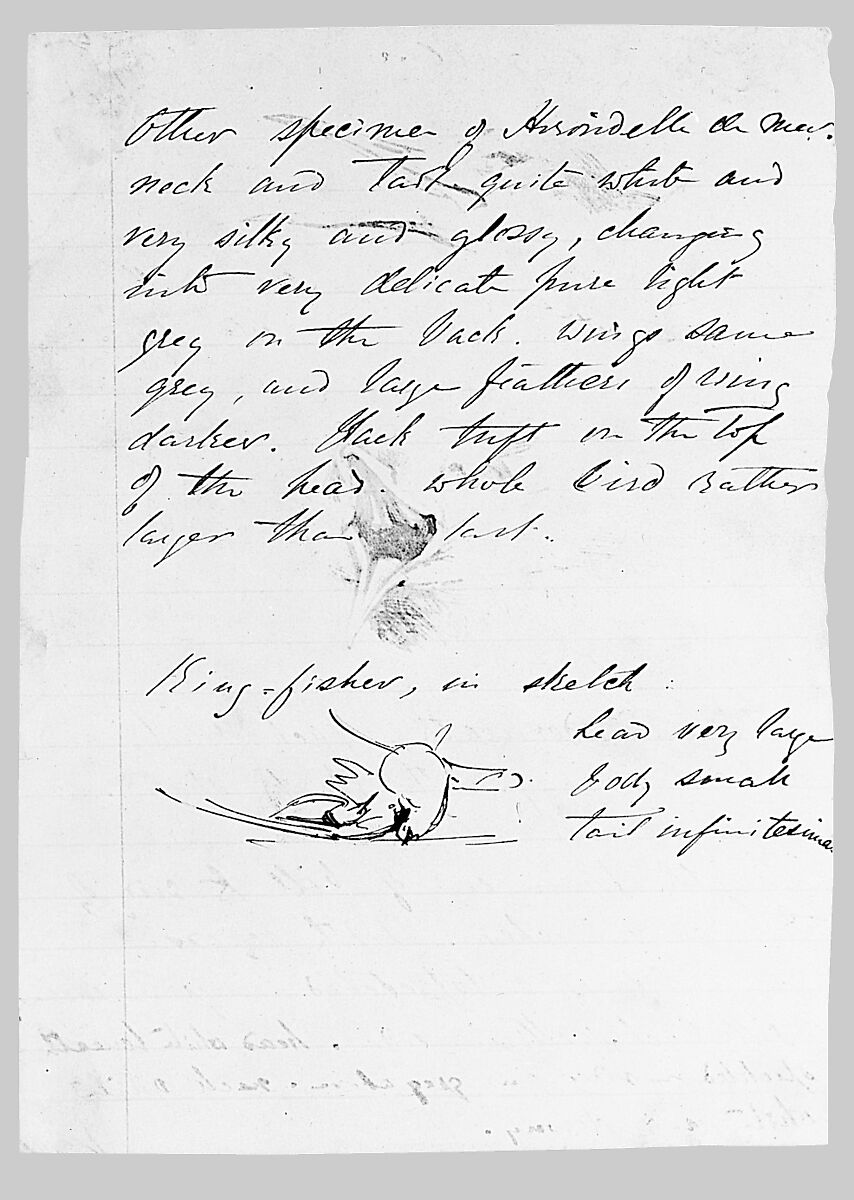 Other specimen of Hirondelle de Mer.
neck and tail quite white and
very silky and glossy, changing
into very delicate pure light
grey on the back. Wings same
grey, and large feathers of wing
darker. Black tuft on the top
of the head. whole bird rather
larger than last.
King-fisher, in sketch:
head very large
body small
tail infinitesimal